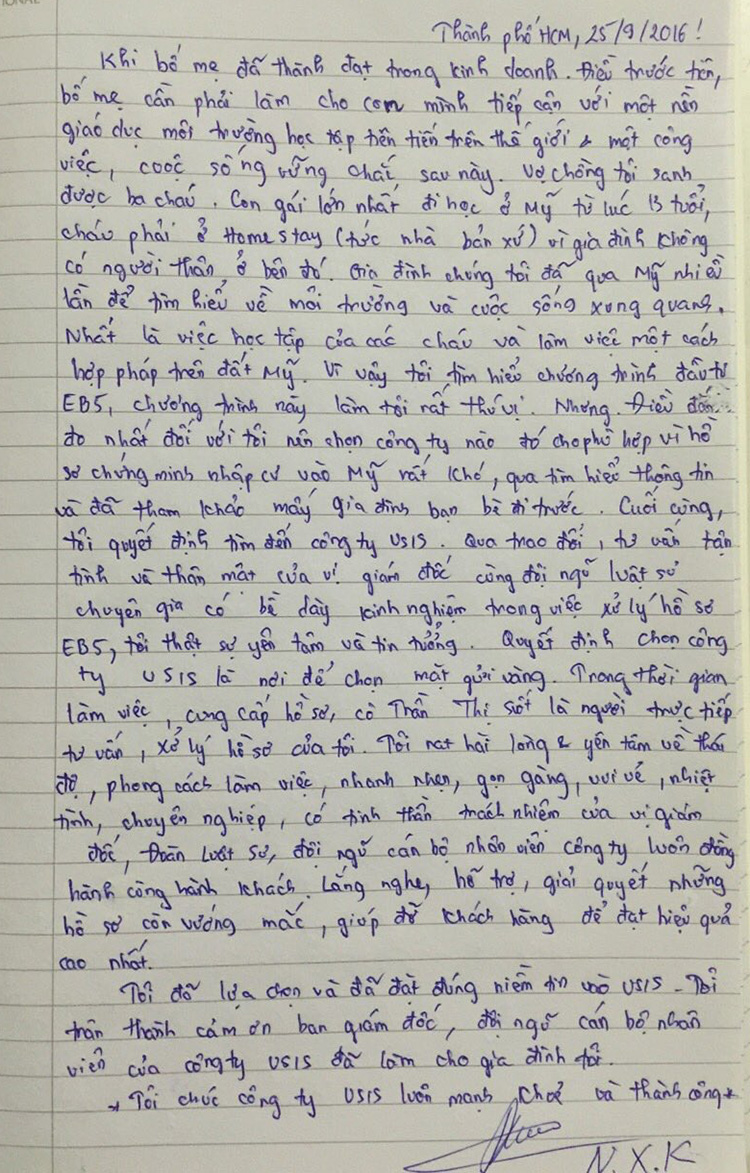 Thành phố HCM, 25/9/2016!
Khi bố mẹ đã thành đạt trong kinh doanh. Điều trước tiên,
bố mẹ cần phải làm cho con mình tiếp cận với một nền
giáo dục môi trường học tập tiên tiến trên thế giới & một công
việc, cuộc sống vững chắc sau này. Vợ chồng tôi sanh
được ba cháu. Con gái lớn nhất đi học ở Mỹ từ lúc 13 tuổi,
cháu phải ở Homestay (tức nhà bản xứ) vì gia đình không
có người thân ở bên đó. Gia đình chúng tôi đã qua Mỹ nhiều
lần để tìm hiểu về môi trường và cuộc sống xung quang.
Nhất là việc học tập của các cháu và làm việc một cách
hợp pháp trên đất Mỹ. Vì vậy tôi tìm hiểu chương trình đầu tư
EB5, chương trình này làm tôi rất thú vị. Nhưng. Điều đắn
đo nhất đối với tôi nên chọn công ty nào đó cho phù hợp vì hồ
sơ chứng minh nhập cư vào Mỹ rất khó, qua tìm hiểu thông tin
và đã tham khảo mấy gia đình bạn bè đi trước. Cuối cùng,
tôi quyết định tìm đến công ty USIS. Qua trao đổi, tư vấn tận
tình và thân mật của vị giám đốc cùng đội ngũ luật sư
chuyên gia có bề dày kinh nghiệm trong việc xử lý hồ sơ
EB5, tôi thật sự yên tâm và tin tưởng. Quyết định chọn công
ty USIS là nơi để chọn mặt gửi vàng. Trong thời gian
làm việc, cung cấp hồ sơ, cô Trần Thị Sốt là người trực tiếp
tư vấn, xử lý hồ sơ của tôi. Tôi rat hài lòng & yên tâm về thái
độ, phong cách làm việc, nhanh nhẹn, gọn gàng, vui vẻ, nhiệt
tình, chuyên nghiệp, có tinh thần trách nhiệm của vị giám
đốc, Đoàn Luật Sư, đội ngũ cán bộ nhân viên công ty luôn đồng
hành công hành khách. Lắng nghe, hỗ trợ, giải quyết những
hồ sơ còn vướng mắc, giúp đỡ khách hàng để đạt hiệu quả
cao nhất.
Tôi đã lựa chọn và đã đặt đúng niềm tin vào USIS - Tôi
trân thành cảm ơn ban giám đốc, đội ngũ cán bộ nhân
viên của công ty USIS đã làm cho gia đình tôi.
* Tôi chúc công ty USIS luôn mạnh khoẻ và thành công *
N.X.K